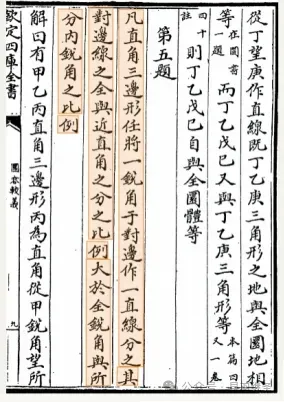 從丁望庚作直線既丁乙庚三角形之地與全圜地相
等在圜書一題而丁乙戊己又與丁乙庚三角形等本篇四又一卷
四十註則丁乙戊己自與全圜體等
第五題
凡直角三邊形任將一銳角于對邊作一直線分之其
對邊線之全與近直角之分之比例大於全銳角與所
分内銳角之比例
解曰有甲乙丙直角三邊形丙為直角從甲銳角望所
欽定四庫全書
圜容較義
九
公众号